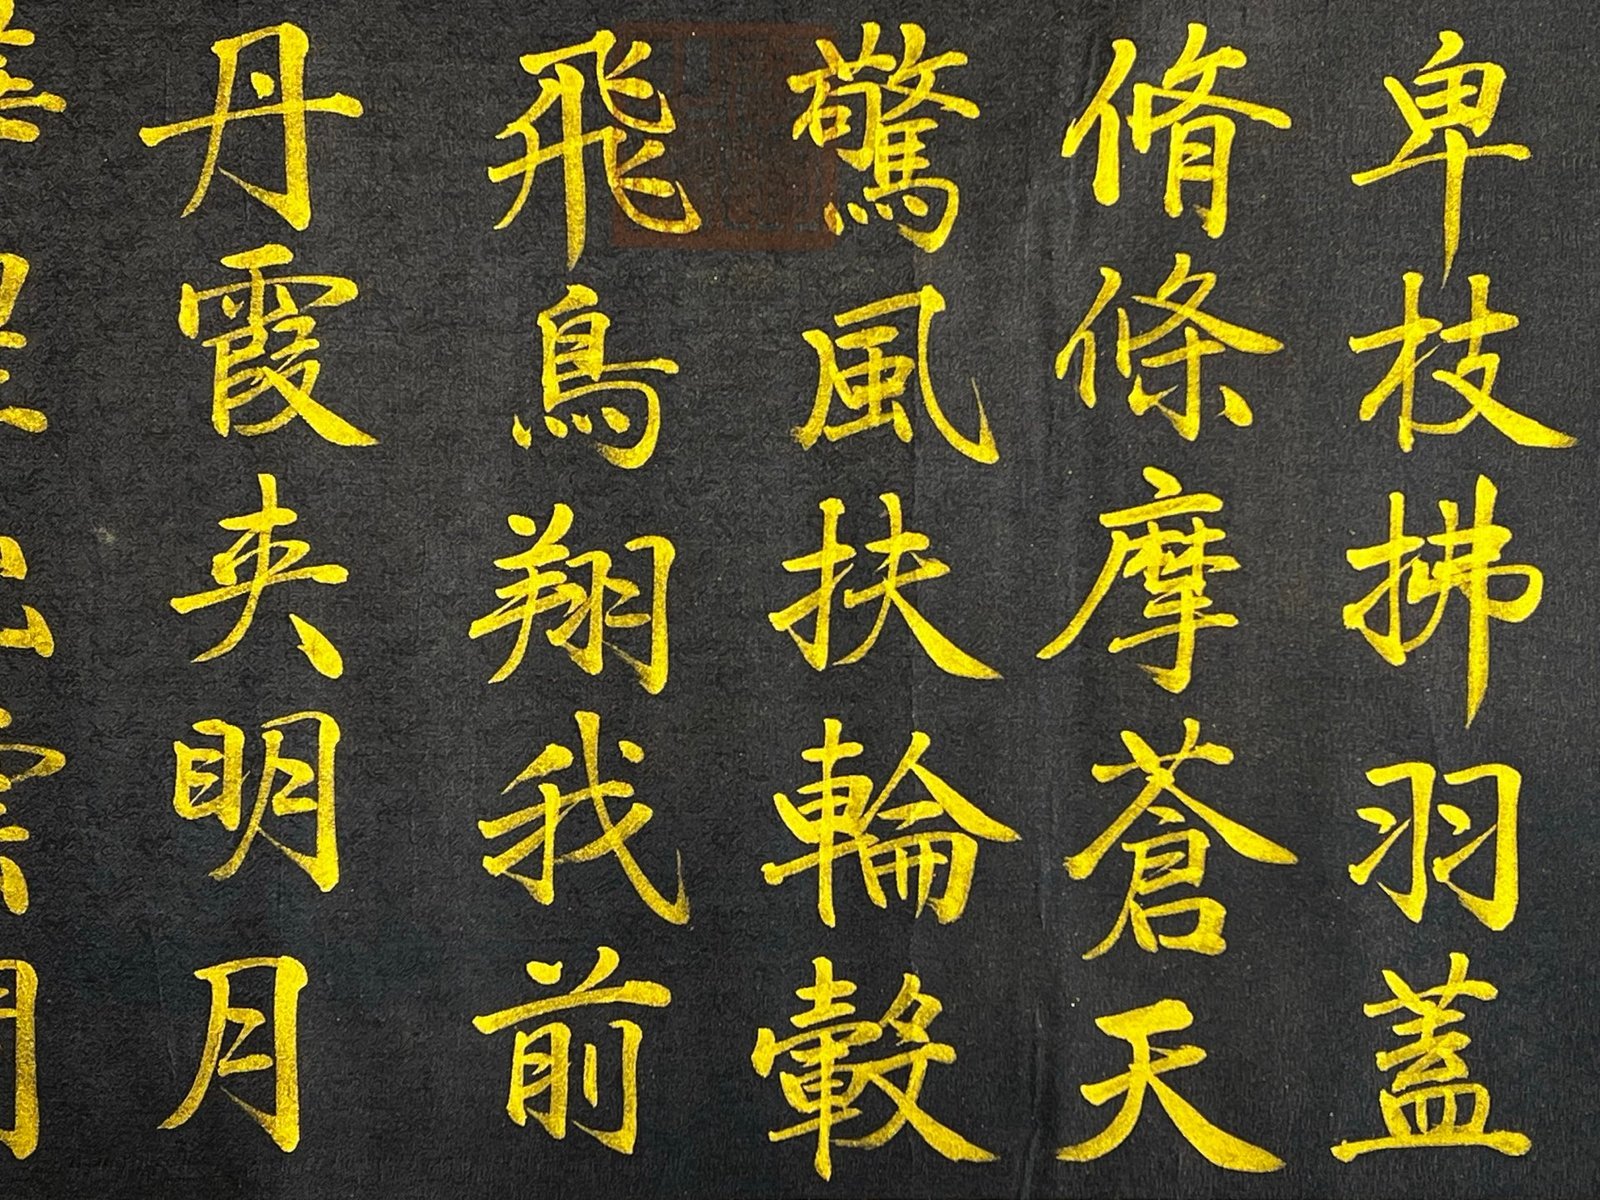 卑枝拂羽蓋
脩條摩蒼天
驚風扶輪轂
飛鳥翔我前
丹霞夾明月